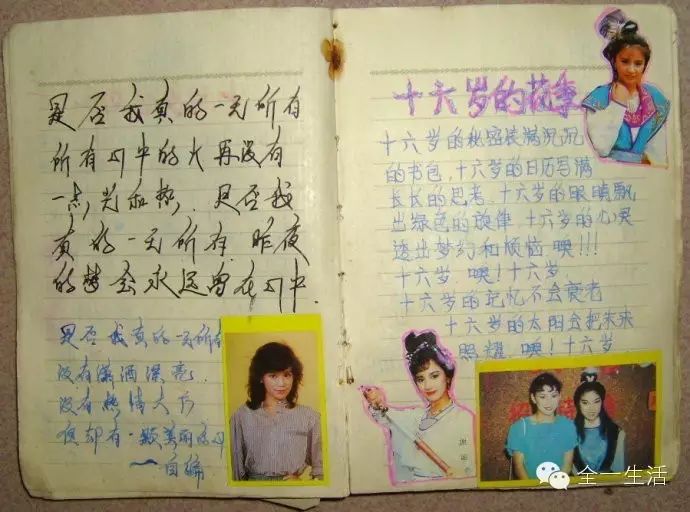 是否我真的一无所有
所有心中的火再没有
一点光和热，是否我
真的一无所有，昨夜
的梦会永远留在心中.
是否我真的一无所有
没有潇洒漂亮.
没有热情大方
但却有一颗美丽的心
——自编
十六岁的花季
十六岁的秘密装满沉沉
的书包,十六岁的日历写满
长长的思考,十六岁的眼睛飘
出绿色的旋律,十六岁的心灵
透出梦幻和烦恼噢!!!
十六岁,噢!十六岁,
十六岁的记忆不会衰老
十六岁的太阳会把未来
照耀,噢!十六岁
全一生活